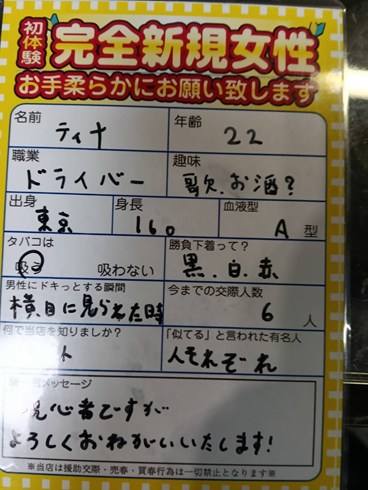 初体験
完全新規女性
お手柔らかにお願い致します
名前 ティナ
年齢 22
職業 ドライバー
趣味 歌、お酒?
出身 東京
身長 160
血液型 A 型
タバコは 吸う 吸わない
勝負下着って? 黒、白、赤
男性にドキっとする瞬間
横目に見られた時
今までの交際人数 6 人
何で当店を知りましたか?
ト
「似てる」と言われた有名人
人それぞれ
メッセージ
心者ですが
よろしくおねがいいたします!
※当店は援助交際・売春・買春行為は一切禁止となります※